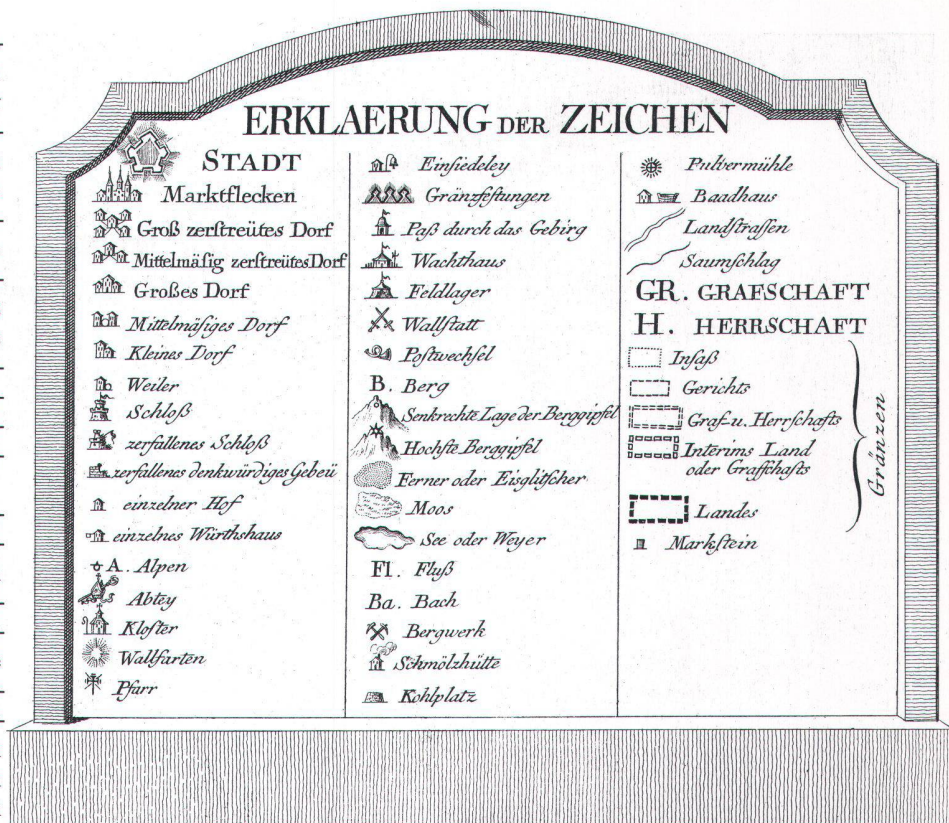 ERKLAERUNG DER ZEICHEN
STADT
Marktflecken
Groß zerstreütes Dorf
Mittelmäsig zerstreütes Dorf
Großes Dorf
Mittelmäsiges Dorf
Kleines Dorf
Weiler
Schloß
zerfallenes Schloß
zerfallenes denkwürdiges Gebeü
einzelner Hof
einzelnes Würthshaus
A. Alpen
Abtey
Kloster
Wallfarten
Pfarr
Einsiedeley
Gränzfestungen
Paß durch das Gebirg
Wachthaus
Feldlager
Wallstatt
Postwechsel
B. Berg
Senkrechte Lage der Berggipfel
Hochste Berggipfel
Ferner oder Eisglitscher
Moos
See oder Weyer
Fl. Fluß
Ba. Bach
Bergwerk
Schmölzhütte
Kohlplatz
Pulvermühle
Baadhaus
Landstrassen
Saumschlag
GR. GRAFSCHAFT
H. HERRSCHAFT
Insaß
Gerichts
Graf-u. Herrschafts
Interims Land
oder Grafschafts
Landes
Gränzen
Markstein